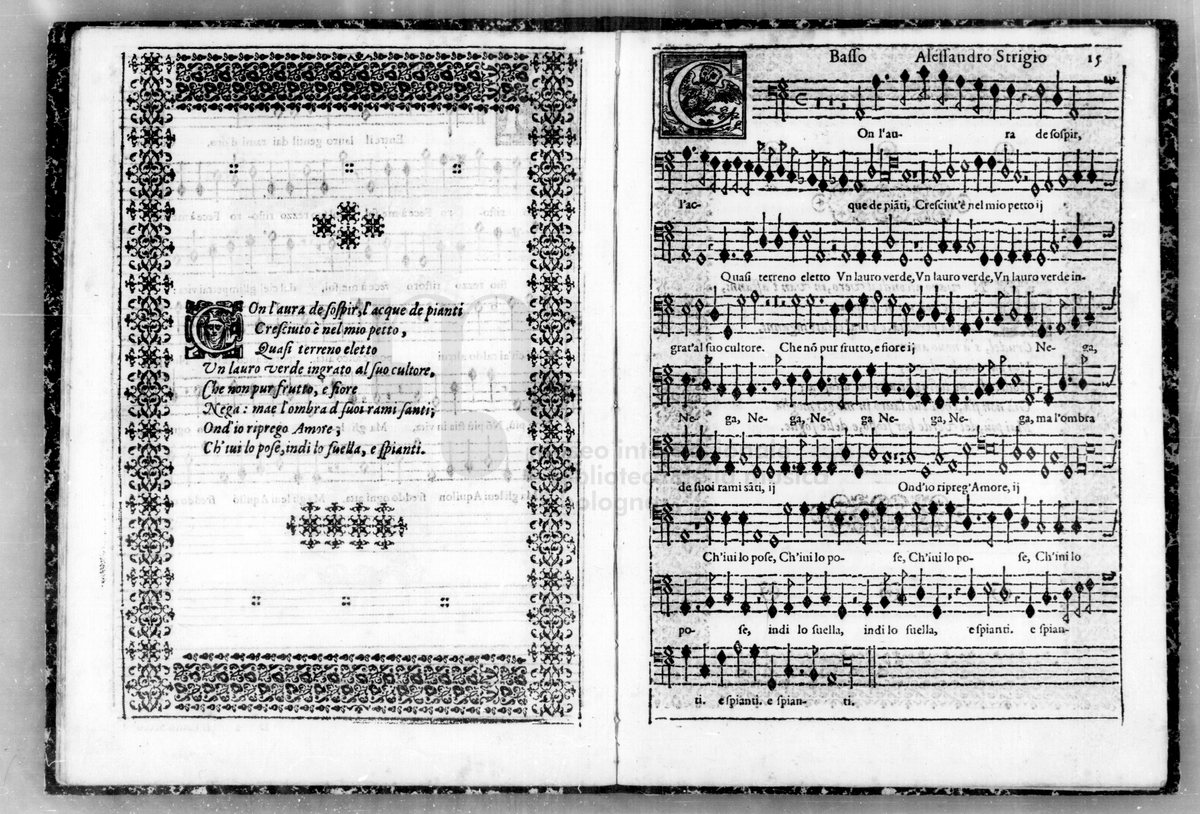 Con l'aura de sospir, l'acque de pianti
Cresciuto è nel mio petto,
Quasi terreno eletto
Vn lauro verde ingrato al suo cultore,
Che non pur frutto, e fiore
Nega: mae l'ombra d suoi rami santi;
Ond io riprego Amore,
Ch'iui lo pose, indi lo suella, e spianti.
Basso Alessandro Strigio 15
COn l'au- ra de sospir,
l'ac- que de piãti, Cresciut'è nel mio petto ij
Quasi terreno eletto Vn lauro verde, Vn lauro verde, Vn lauro verde in-
grat'al suo cultore. Che nõ pur frutto, e fiore ij Ne- ga,
Ne- ga, Ne- ga, Ne- ga, Ne- ga, Ne- ga, ma l'ombra
de suoi rami sãti, ij Ond'io ripreg'Amore, ij
Ch'iui lo pose, Ch'iui lo po- se, Ch'iui lo po- se, Ch'iui lo
po- se, indi lo suella, indi lo suella, e spianti. e spian-
ti. e spianti. e spian- ti.